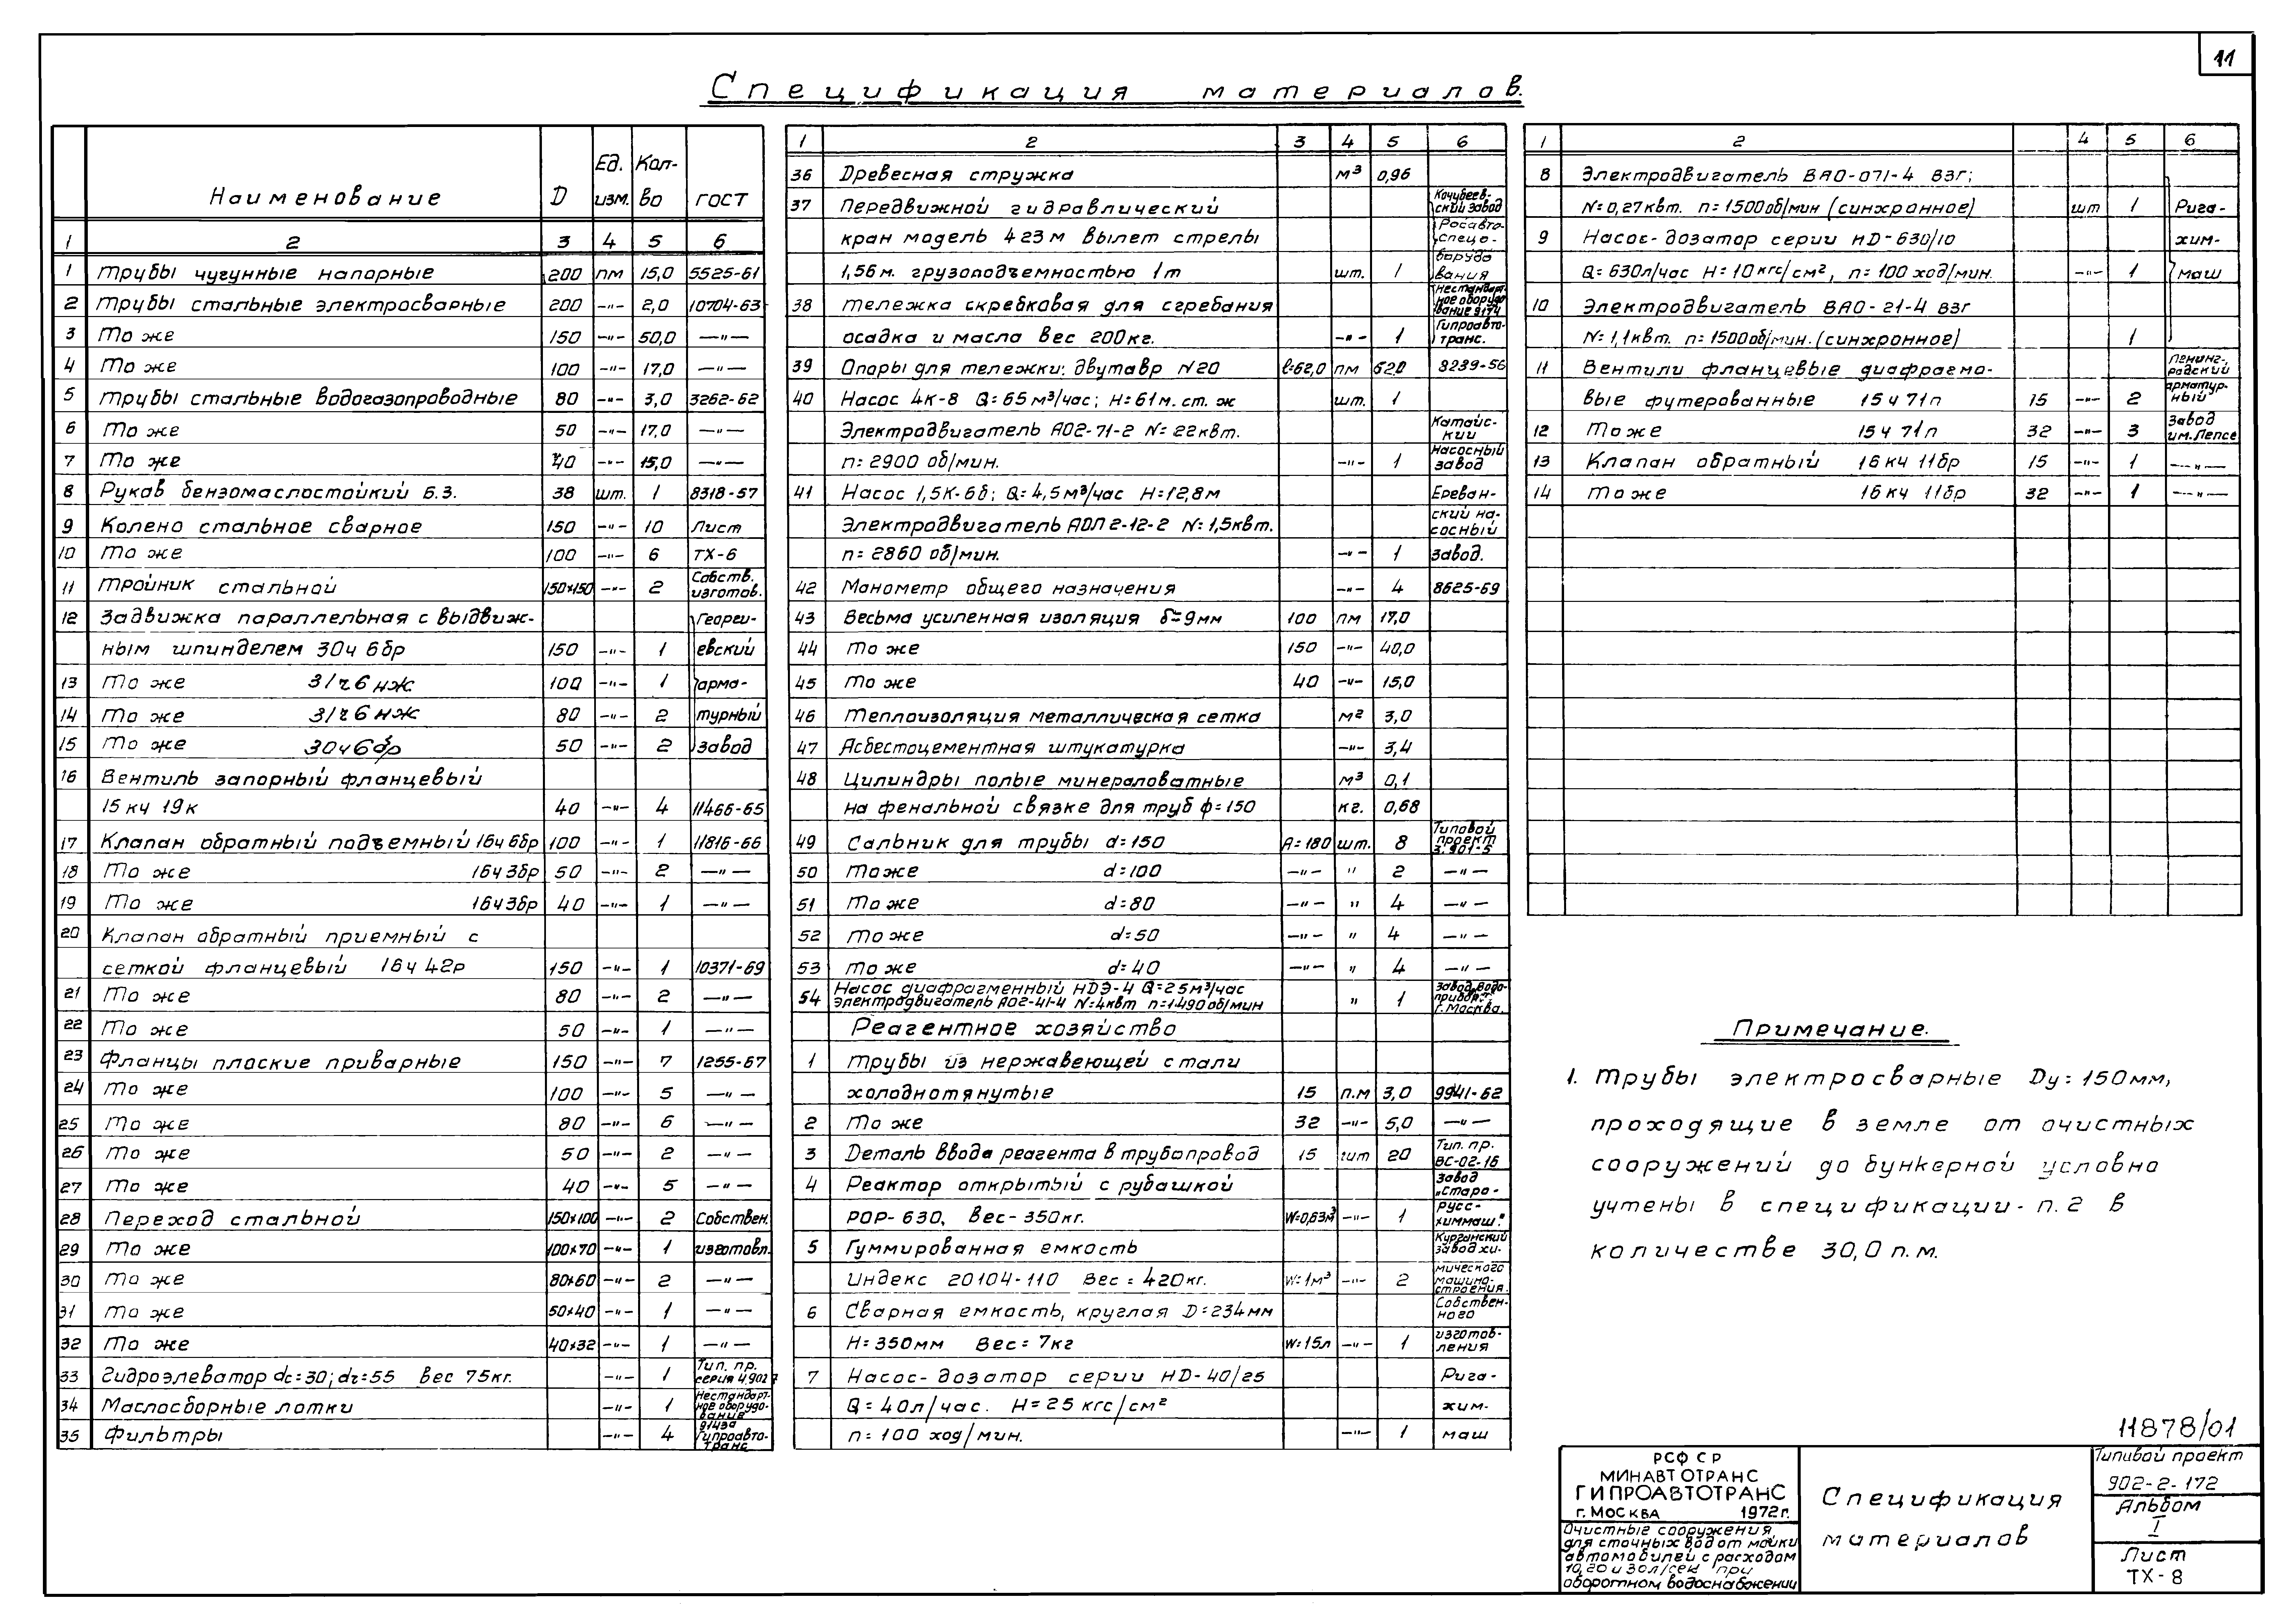 11
Спецификация материалов.
Наименование D Ед. изм. Кол-во ГОСТ
1 2 3 4 5 6
1 Трубы чугунные напорные 200 пм 15,0 5525-61
2 Трубы стальные электросварные 200 —"— 2,0 10704-63
3 То же 150 —"— 50,0 —"—
4 То же 100 —"— 17,0 —"—
5 Трубы стальные водогазопроводные 80 —"— 3,0 3262-62
6 То же 50 —"— 17,0 —"—
7 То же 40 —"— 15,0 —"—
8 Рукав бензомаслостойкий Б.З. 38 шт. 1 8318-57
9 Колено стальное сварное 150 —"— 10 Лист
10 То же 100 —"— 6 ТХ-6
11 Тройник стальной 150х150 —"— 2 Собств. изготов.
12 Задвижка параллельная с выдвиж- Георги-
ным шпинделем 30ч 6бр 150 —"— 1 евский
13 То же 31ч6нж 100 —"— 1 арма-
14 То же 31ч6нж 80 —"— 2 турный
15 То же 30ч6бр 50 —"— 2 завод
16 Вентиль запорный фланцевый
15 кч 19к 40 —"— 4 11466-65
17 Клапан обратный подъемный 16ч 6бр 100 —"— 1 11816-66
18 То же 16ч 3бр 50 —"— 2 —"—
19 То же 16ч 3бр 40 —"— 1 —"—
20 Клапан обратный приемный с
сеткой фланцевый 16ч 42р 150 —"— 1 10371-69
21 То же 80 —"— 2 —"—
22 То же 50 —"— 1 —"—
23 Фланцы плоские приварные 150 —"— 7 1255-67
24 То же 100 —"— 5 —"—
25 То же 80 —"— 6 —"—
26 То же 50 —"— 2 —"—
27 То же 40 —"— 5 —"—
28 Переход стальной 150х100 —"— 2 Собствен.
29 То же 100х70 —"— 1 изготовл.
30 То же 80х60 —"— 2 —"—
31 То же 50х40 —"— 1 —"—
32 То же 40х32 —"— 1 —"—
33 Гидроэлеватор dс=30; dг=55 вес 75кг. —"— 1 Тип. пр. серия 4.902
34 Маслосборные лотки —"— 1 Нестандарт-ное оборудо-вание
35 Фильтры —"— 4 Гипроавто-транс
1 2 3 4 5 6
36 Древесная стружка м³ 0,96
37 Передвижной гидравлический Кочубеев-ский завод
кран модель 423м вылет стрелы Росавто-спецо-
1,56м. грузоподъемностью 1т шт. 1 борудо вания
38 Тележка скребковая для сгребания Нестандарт-ное оборудо вание 9174
осадка и масла вес 200кг. —"— 1 Гипроавто-транс.
39 Опоры для тележки: двутавр N20 ℓ=62,0 пм 620 8239-56
40 Насос 4К-8 Q=65м³/час; Н=61м. ст. ж шт. 1
Электродвигатель АО2-71-2 N=22квт. Катайс-кий
n=2900 об/мин. —"— 1 насосный завод
41 Насос 1,5К-6б; Q=4,5м³/час Н=12,8м Ереван-
Электродвигатель АОЛ2-12-2 N=1,5квт. ский на-сосный
n=2860 об/мин. —"— 1 завод.
42 Манометр общего назначения —"— 4 8625-69
43 Весьма усиленная изоляция δ=9мм 100 пм 17,0
44 То же 150 —"— 40,0
45 То же 40 —"— 15,0
46 Теплоизоляция металлическая сетка м² 3,0
47 Асбестоцементная штукатурка —"— 3,4
48 Цилиндры полые минераловатные м³ 0,1
на фенальной связке для труб ф=150 кг. 0,68
49 Сальник для трубы d=150 А=180 шт. 8 Типовой проект 3.901-5
50 То же d=100 —"— " 2 —"—
51 То же d=80 —"— " 4 —"—
52 То же d=50 —"— " 4 —"—
53 То же d=40 —"— " 4 —"—
54 Насос диафрагменный НДЭ-4 Q=25м³/час
электродвигатель АО2-41-4 N=4квт n=1490об/мин " 1 Завод „Водо-прибор" г. Москва.
Реагентное хозяйство
1 Трубы из нержавеющей стали
холоднотянутые 15 п.м 3,0 9941-62
2 То же 32 —"— 5,0 —"—
3 Деталь ввода реагента в трубопровод 15 шт 20 Тип. пр. ВС-02-16
4 Реактор открытый с рубашкой завод „Старо-
РОР-630, вес-350кг. W=0,63м³ —"— 1 русс-химмаш."
5 Гуммированная емкость Курганский завод хи-
Индекс 20104-110 вес=420кг. W=1м³ —"— 2 мического машино-строения.
6 Сварная емкость, круглая D=234мм Собствен-ного
Н=350мм Вес=7кг W=15л —"— 1 изготов-ления
7 Насос-дозатор серии НD-40/25 Рига-
Q=40л/час. Н=25 кгс/см² хим-
n=100 ход/мин. —"— 1 маш
1 2 4 5 6
8 Электродвигатель ВАО-071-4 взг;
N=0,27квт. n=1500об/мин (синхронное) шт 1 Рига-
9 Насос-дозатор серии НD-630/10 хим-
Q=630л/час Н=10кгс/см², n=100 ход/мин. —"— 1 маш
10 Электродвигатель ВАО-21-4 взг
N=1,1квт. n=1500об/мин. (синхронное) 1
11 Вентили фланцевые диафрагмо- Ленинг-радский
вые футерованные 15ч 71п 15 —"— 2 арматур-ный
12 То же 15ч 71п 32 —"— 3 завод им. Лепсе
13 Клапан обратный 16кч 11бр 15 —"— 1 —"—
14 То же 16кч 11бр 32 —"— 1 —"—
Примечание.
1. Трубы электросварные Dу=150мм,
проходящие в земле от очистных
сооружений до бункерной условно
учтены в спецификации-п.2 в
количестве 30,0 п.м.
11878/01
РСФСР
МИНАВТОТРАНС
ГИПРОАВТОТРАНС
г. Москва 1972г.
Очистные сооружения
для сточных вод от мойки
автомобилей с расходом
10,20 и 30л/сек при
оборотном водоснабжении
Спецификация
материалов
Типовой проект
902-2-172
Альбом
I
Лист
ТХ-8